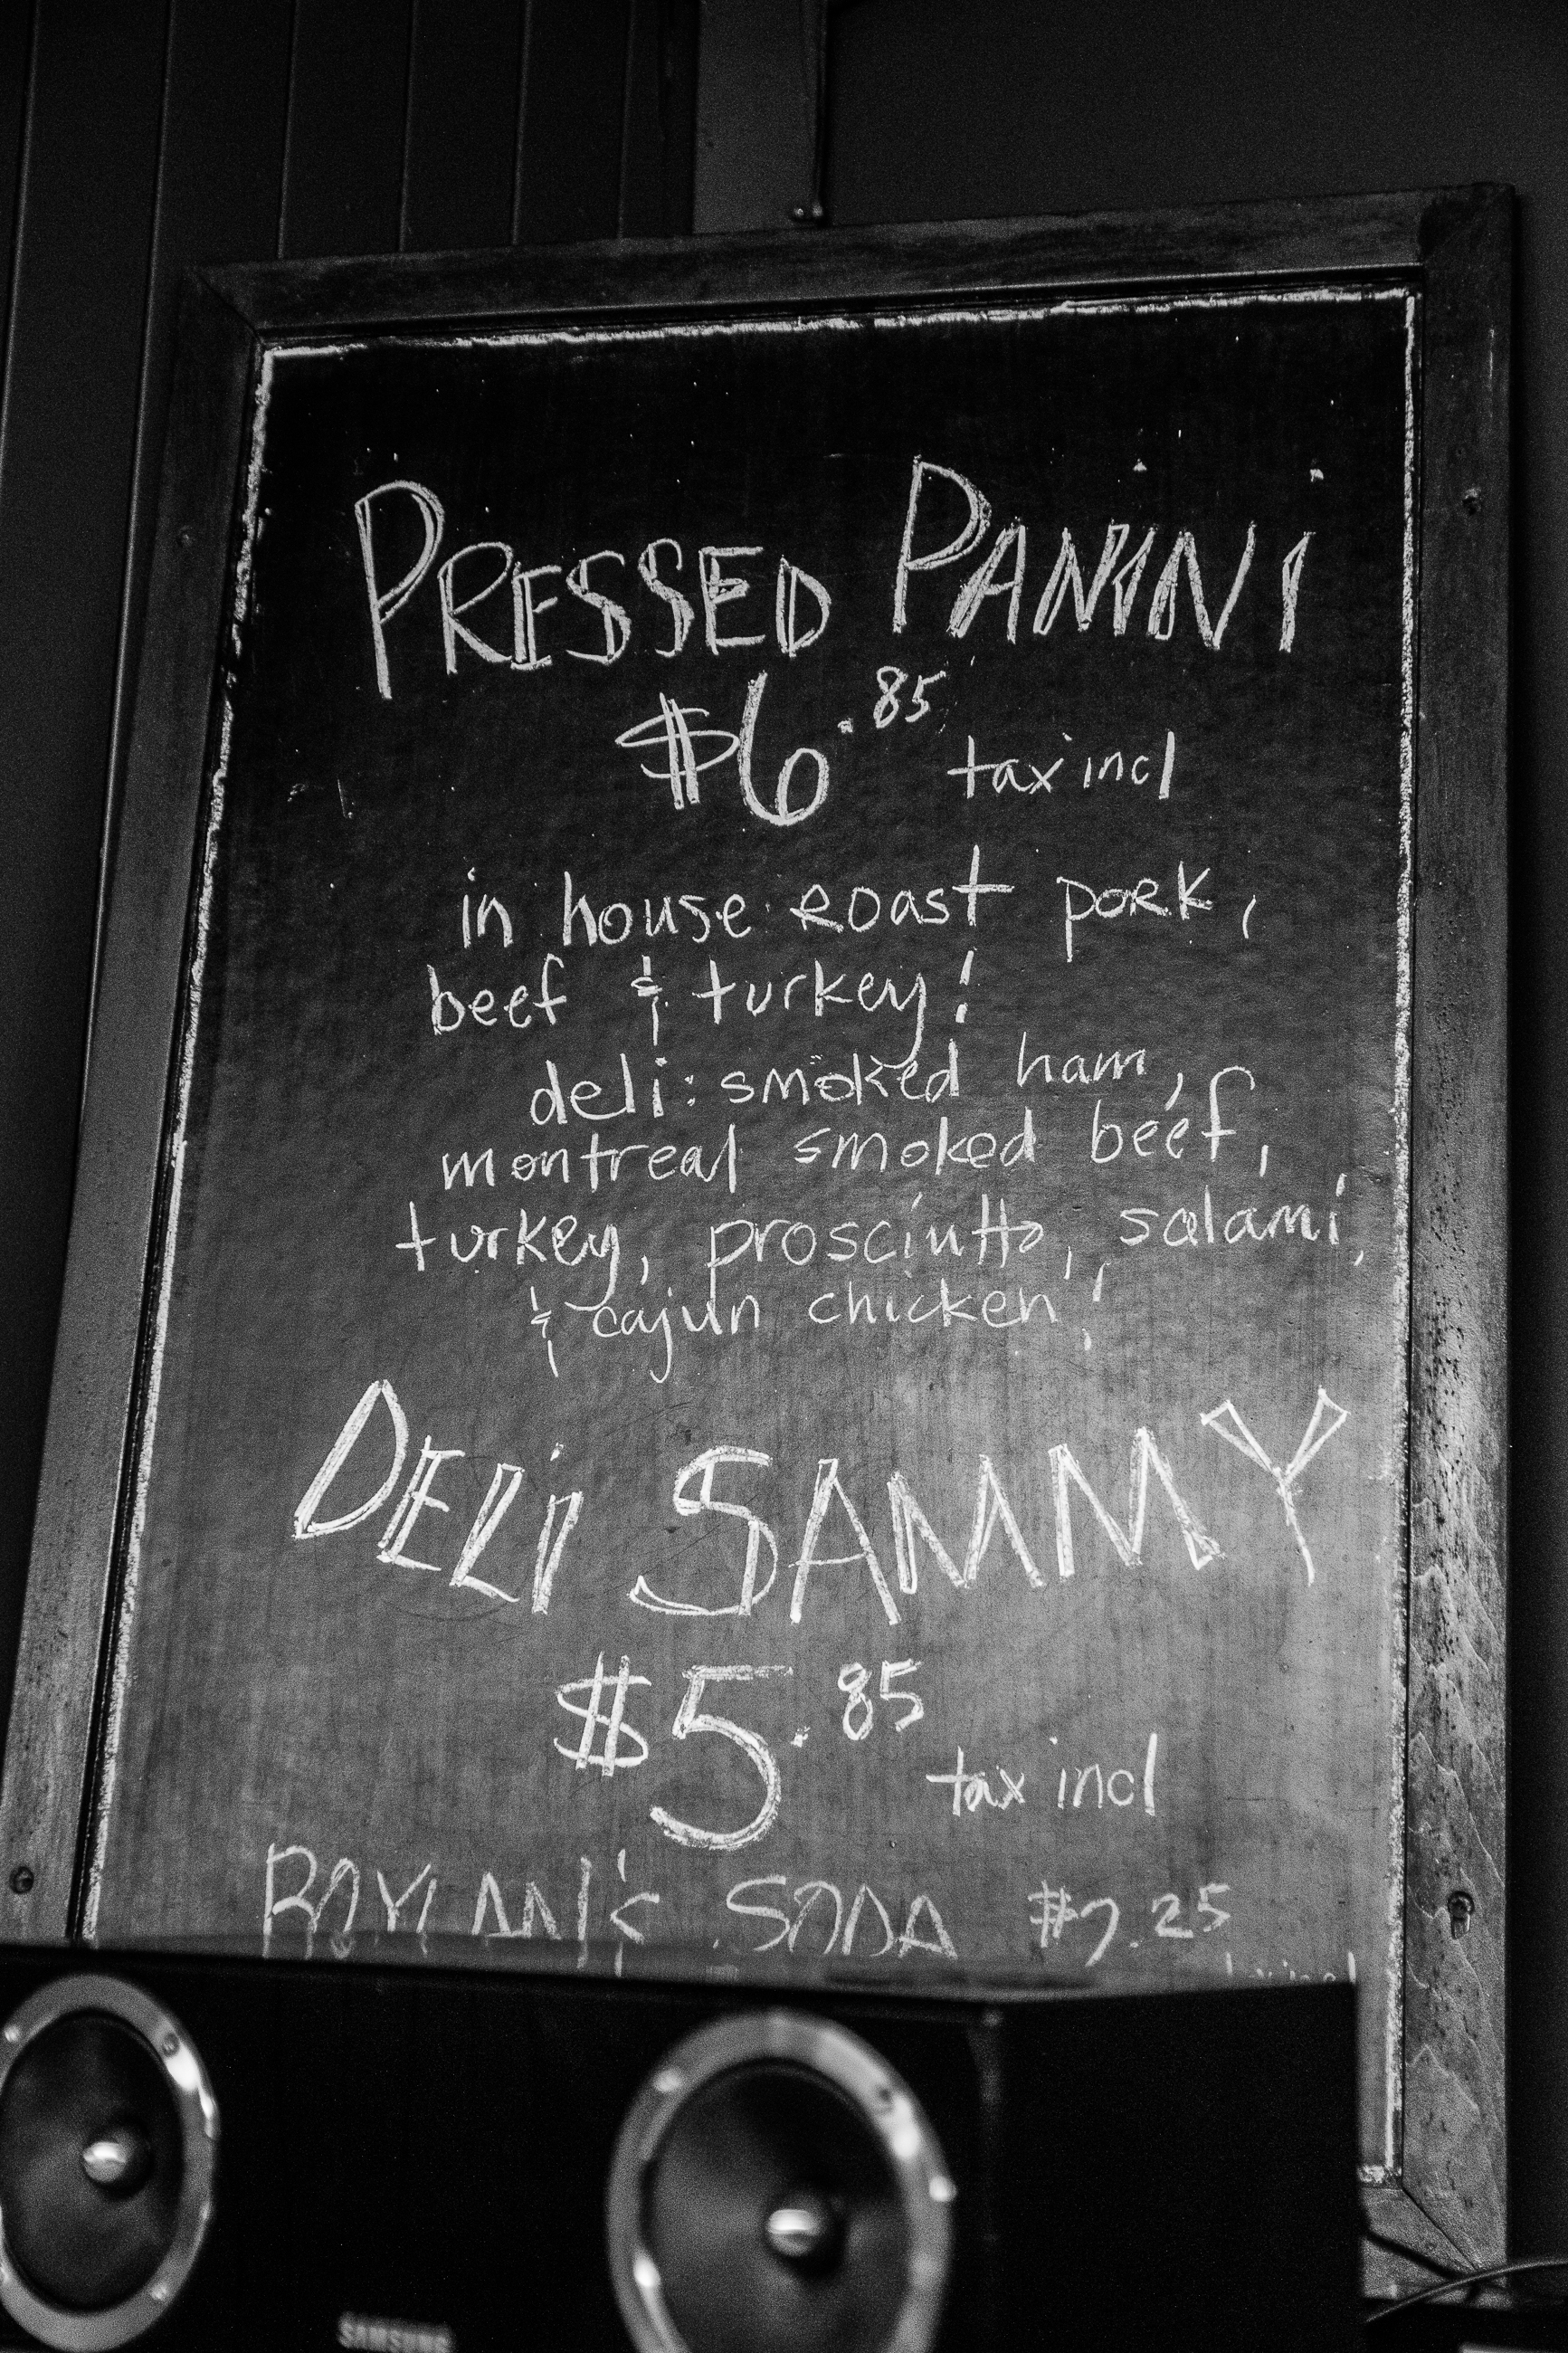 PRESSED PANINI
$6.85 tax incl
in house roast pork,
beef & turkey!
deli: smoked ham,
montreal smoked beef,
turkey, prosciutto, salami,
& cajun chicken!
DELi SAMMY
$5.85 tax incl
BOYLAN'S SODA
SAMSUNG